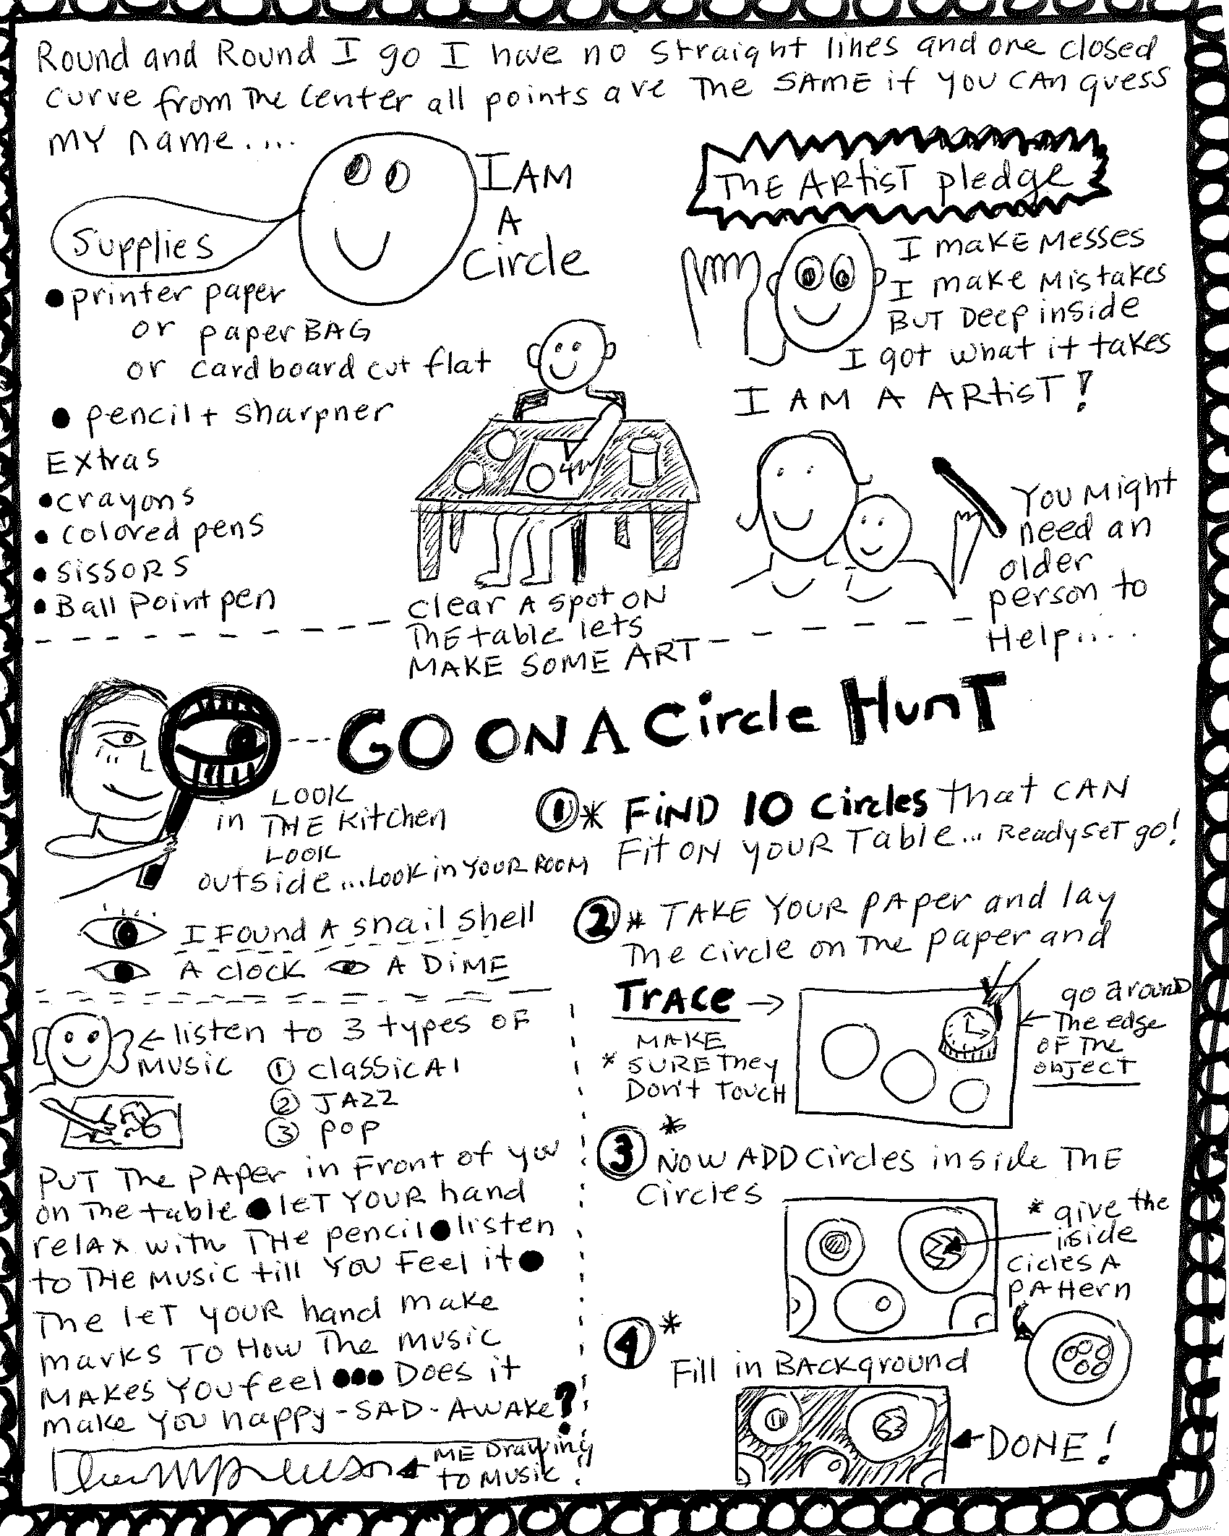 Round and Round I go I have no straight lines and one closed
curve from The Center all points are The SAME if YOU CAN guess
MY name....
I AM
A
Circle
Supplies
● printer paper
or paper BAG
or cardboard cut flat
● pencil + sharpner
Extras
● crayons
● colored pens
● sissors
● Ball Point pen
THE ARtisT pledge
I maKE Messes
I make Mistakes
BUT Deep inside
I got what it takes
I AM A ARtisT!
YOU Might
need an
older
person to
Help.....
Clear A spot ON
THE table lets
MAKE SOME ART
GO ON A Circle HunT
LOOK
in THE Kitchen
LOOK
outside...Look in YOUR ROOM
I Found A snail shell
A clock A DIME
1* FIND 10 Circles that CAN
Fit ON YOUR Table... Ready SET go!
2* TAKE YOUR pAper and lay
The circle on The paper and
TRACE →
MAKE
* SURE They
Don't TOUCH
go around
The edge
OF The
OBJECT
3* NOW ADD Circles inside THE
Circles
* give the
inside
Cicles A
pAttern
4*
Fill in BACKground
DONE!
← listen to 3 types OF
MUSIC
1 classicAl
2 JAZZ
3 POP
PUT The PAPER in Front of you
on The table ● leT YOUR hand
relAx with THe pencil ● listen
to THe MUSIC till YOU Feel it ●
The leT YOUR hand make
marks TO HOW The MUSIC
MAKES YOU feel ●●● Does it
make YOU happy - SAD - AWAKE?
ME Drawing
to MUSIC!